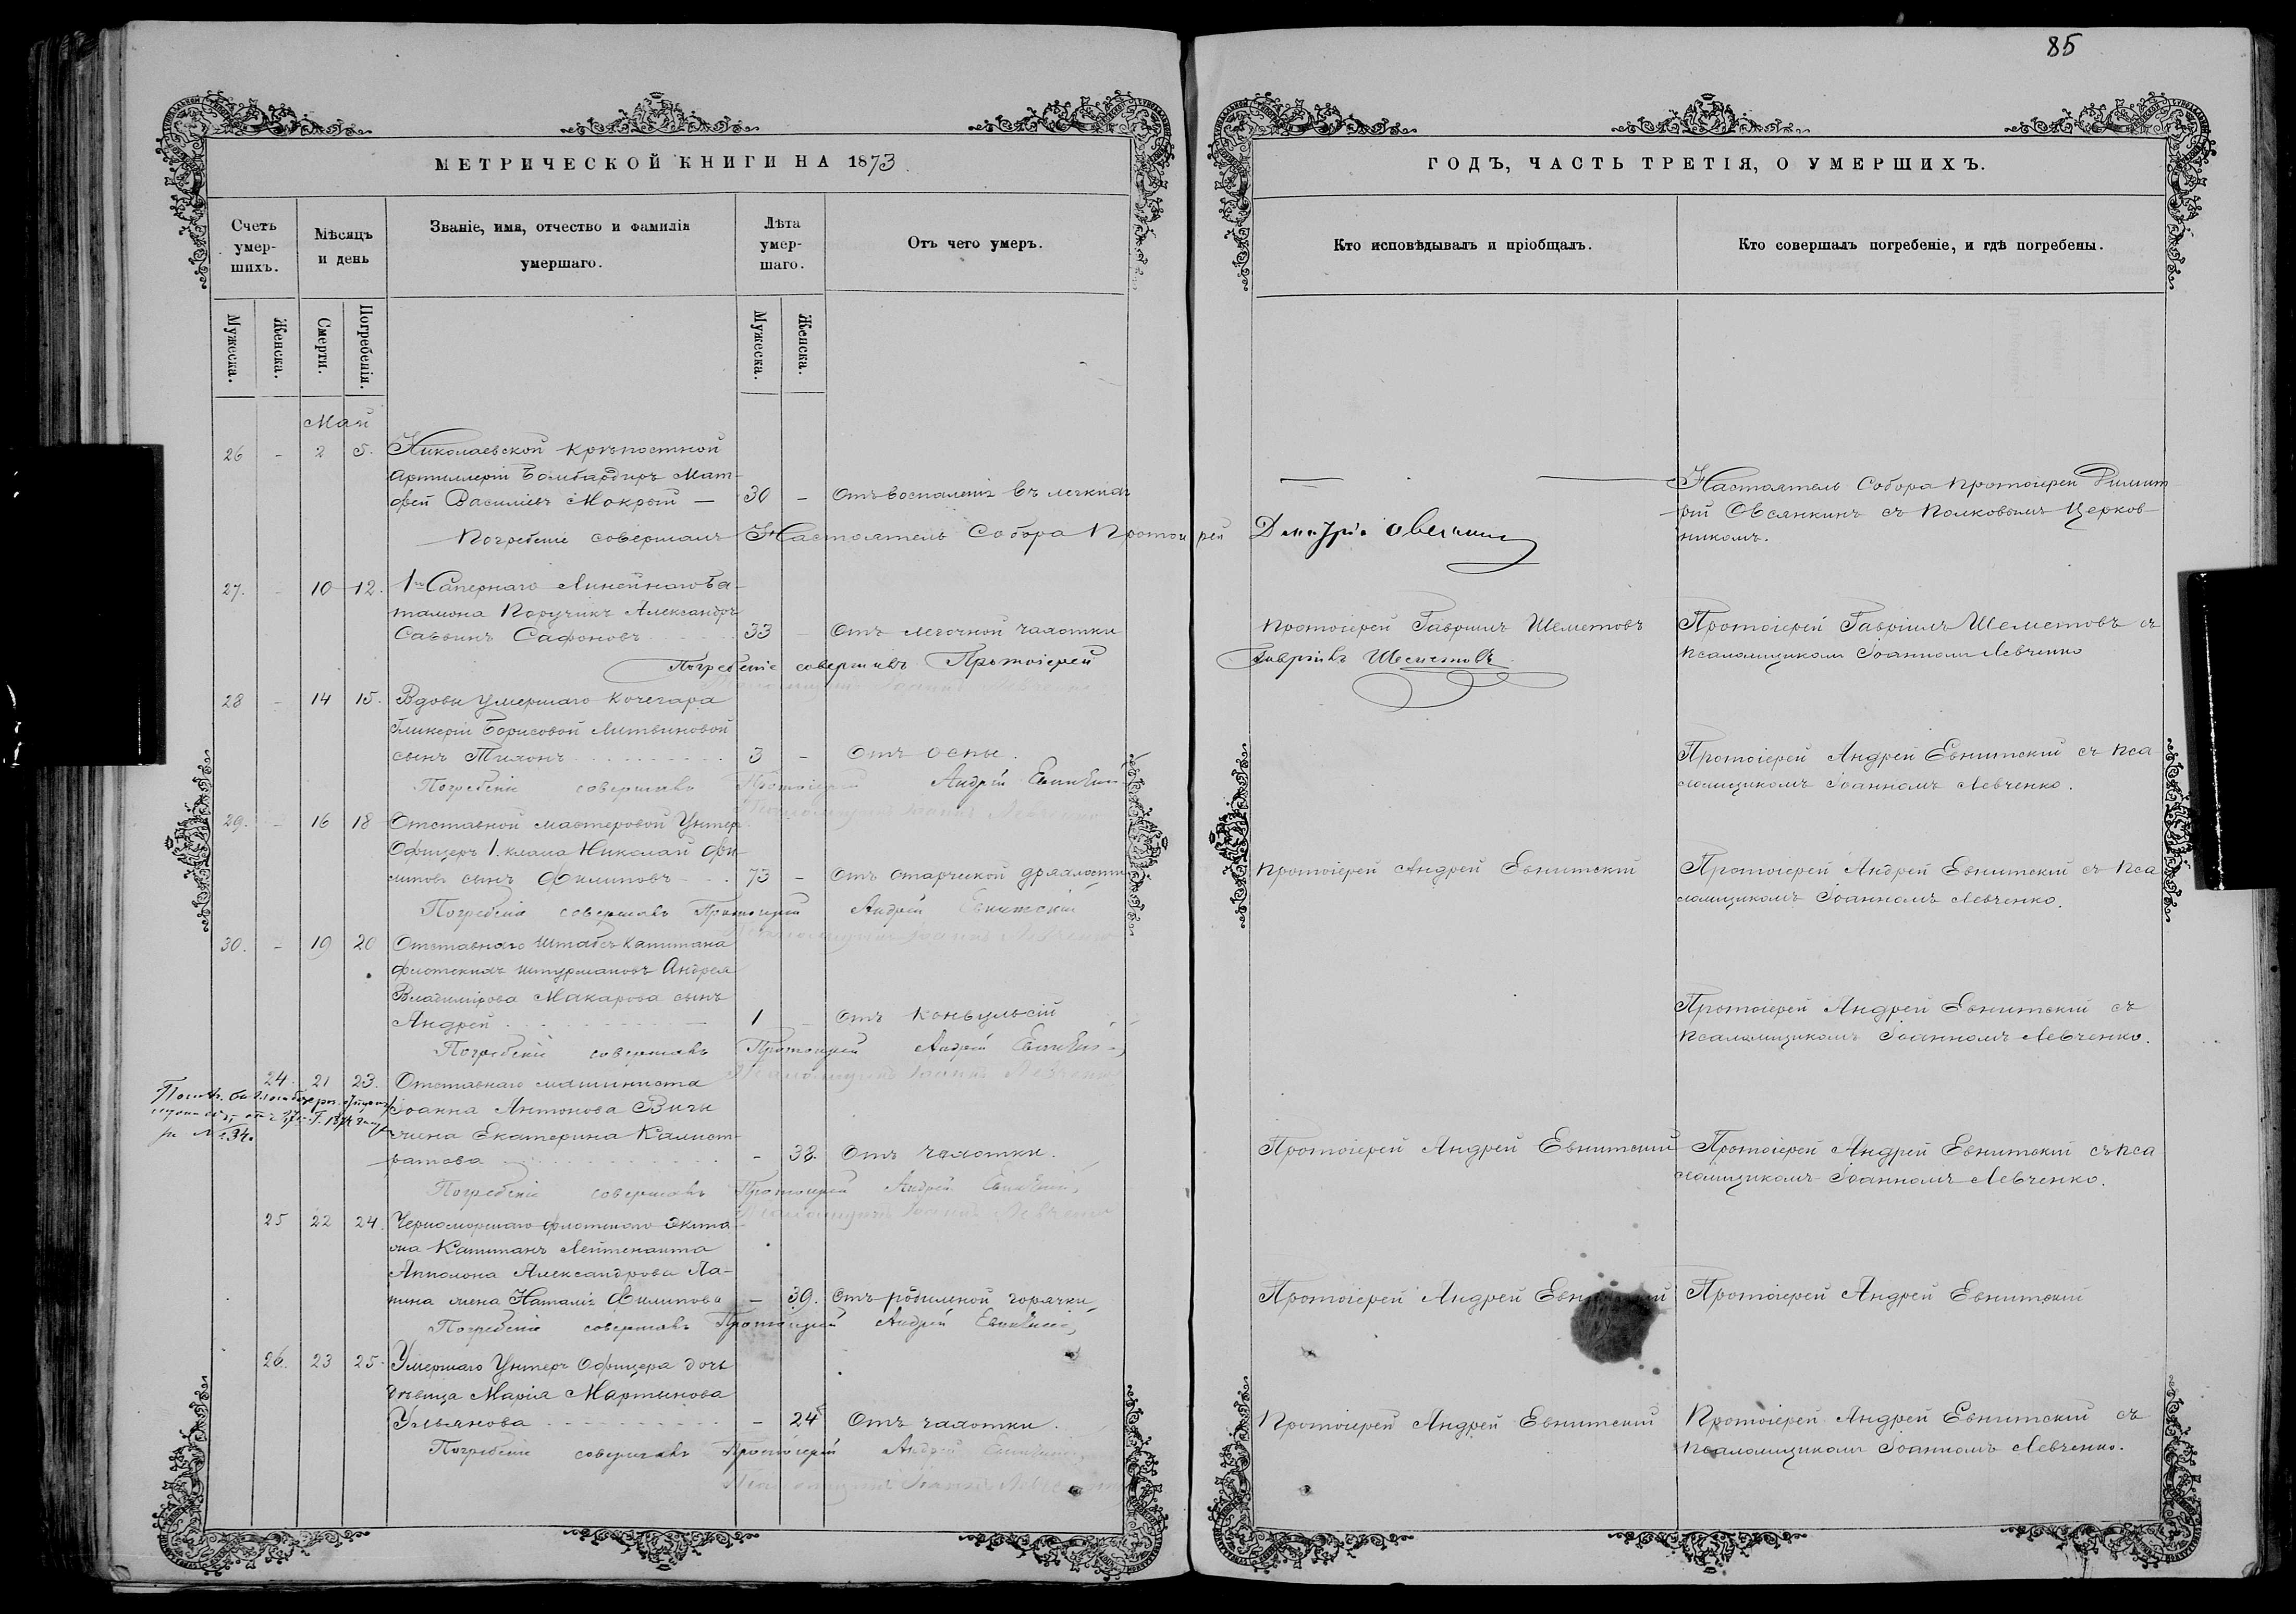 85
МЕТРИЧЕСКОЙ КНИГИ НА 1873
ГОДЪ, ЧАСТЬ ТРЕТІЯ, О УМЕРШИХЪ.
Счетъ умер-шихъ.
Мѣсяцъ и день
Званіе, имя, отчество и фамилія умершаго.
Лѣта умер-шаго.
Отъ чего умеръ.
Кто исповѣдывалъ и пріобщалъ.
Кто совершалъ погребеніе, и гдѣ погребены.
Мужеска.
Женска.
Смерти.
Погребенія.
Мужеска.
Женска.
Май
26 - 2 5. Николаевской крѣпостной
Артиллеріи Бомбардиръ Мат-
фей Василіевъ Мокрый — 30 - Отъ воспаленія въ легкихъ
Настоятель Собора Протоіерей Димит
рій Овсянкинъ съ Полковымъ Церков-
никомъ.
Погребеніе совершалъ Настоятель Собора Протоіерей
27. - 10 12. 1го Сапернаго Линейнаго Ба-
таліона Поручикъ Александръ
Саввинъ Сафоновъ 33 - Отъ легочной чахотки
Протоіерей Гавріилъ Шеметовъ
Протоіерей Гавріилъ Шеметовъ съ
псаломщикомъ Іоанномъ Левченко
Погребеніе совершивъ Протоіерей Гавріилъ Шеметовъ
28 - 14 15. Вдовы умершаго кочегара
Гликеріи Борисовой Литвиновой
сынъ Тихонъ 3 - Отъ оспы.
Протоіерей Андрей Евнитскій съ пса
ломщикомъ Іоанномъ Левченко.
Погребеніе совершалъ Протоіерей Андрей Евнитскій
Псаломщикъ Іоаннъ Левченко
29. - 16 18 Отставной мастеровой Унтеръ
Офицеръ 1. класса Николай Фи-
липовъ сынъ Филиповъ 73 - Отъ старческой дряхлости
Протоіерей Андрей Евнитскій
Протоіерей Андрей Евнитскій съ пса
ломщикомъ Іоанномъ Левченко.
Погребеніе совершалъ Протоіерей Андрей Евнитскій
Псаломщикъ Іоаннъ Левченко
30. - 19 20 Отставнаго Штабсъ капитана
флотскихъ штурмановъ Андрея
Владимірова Макарова сынъ
Андрей 1 Отъ конвульсій
Протоіерей Андрей Евнитскій съ
псаломщикомъ Іоанномъ Левченко.
Погребеніе совершалъ Протоіерей Андрей Евнитскій
Псаломщикъ Іоаннъ Левченко
24. 21 23. Отставнаго машиниста
Іоанна Антонова
жена Екатерина Калист-
ратова - 38. Отъ чахотки.
Протоіерей Андрей Евнитскій
Протоіерей Андрей Евнитскій съ пса
ломщикомъ Іоанномъ Левченко.
Погребеніе совершалъ Протоіерей Андрей Евнитскій
Псаломщикъ Іоаннъ Левченко
25 22 24. Черноморскаго флотскаго экипа-
жа Капитанъ Лейтенанта
Апполона Александрова Ла-
пина жена Наталія Филипова - 39. Отъ родильной горячки
Протоіерей Андрей Евнитскій
Протоіерей Андрей Евнитскій
Погребеніе совершалъ Протоіерей Андрей Евнитскій
26. 23 25. Умершаго Унтеръ Офицера дочь
дѣвица Марія Мартынова
Ульянова - 24 Отъ чахотки.
Протоіерей Андрей Евнитскій
Протоіерей Андрей Евнитскій съ
псаломщикомъ Іоанномъ Левченко.
Погребеніе совершалъ Протоіерей Андрей Евнитскій
Псаломщикъ Іоаннъ Левченко